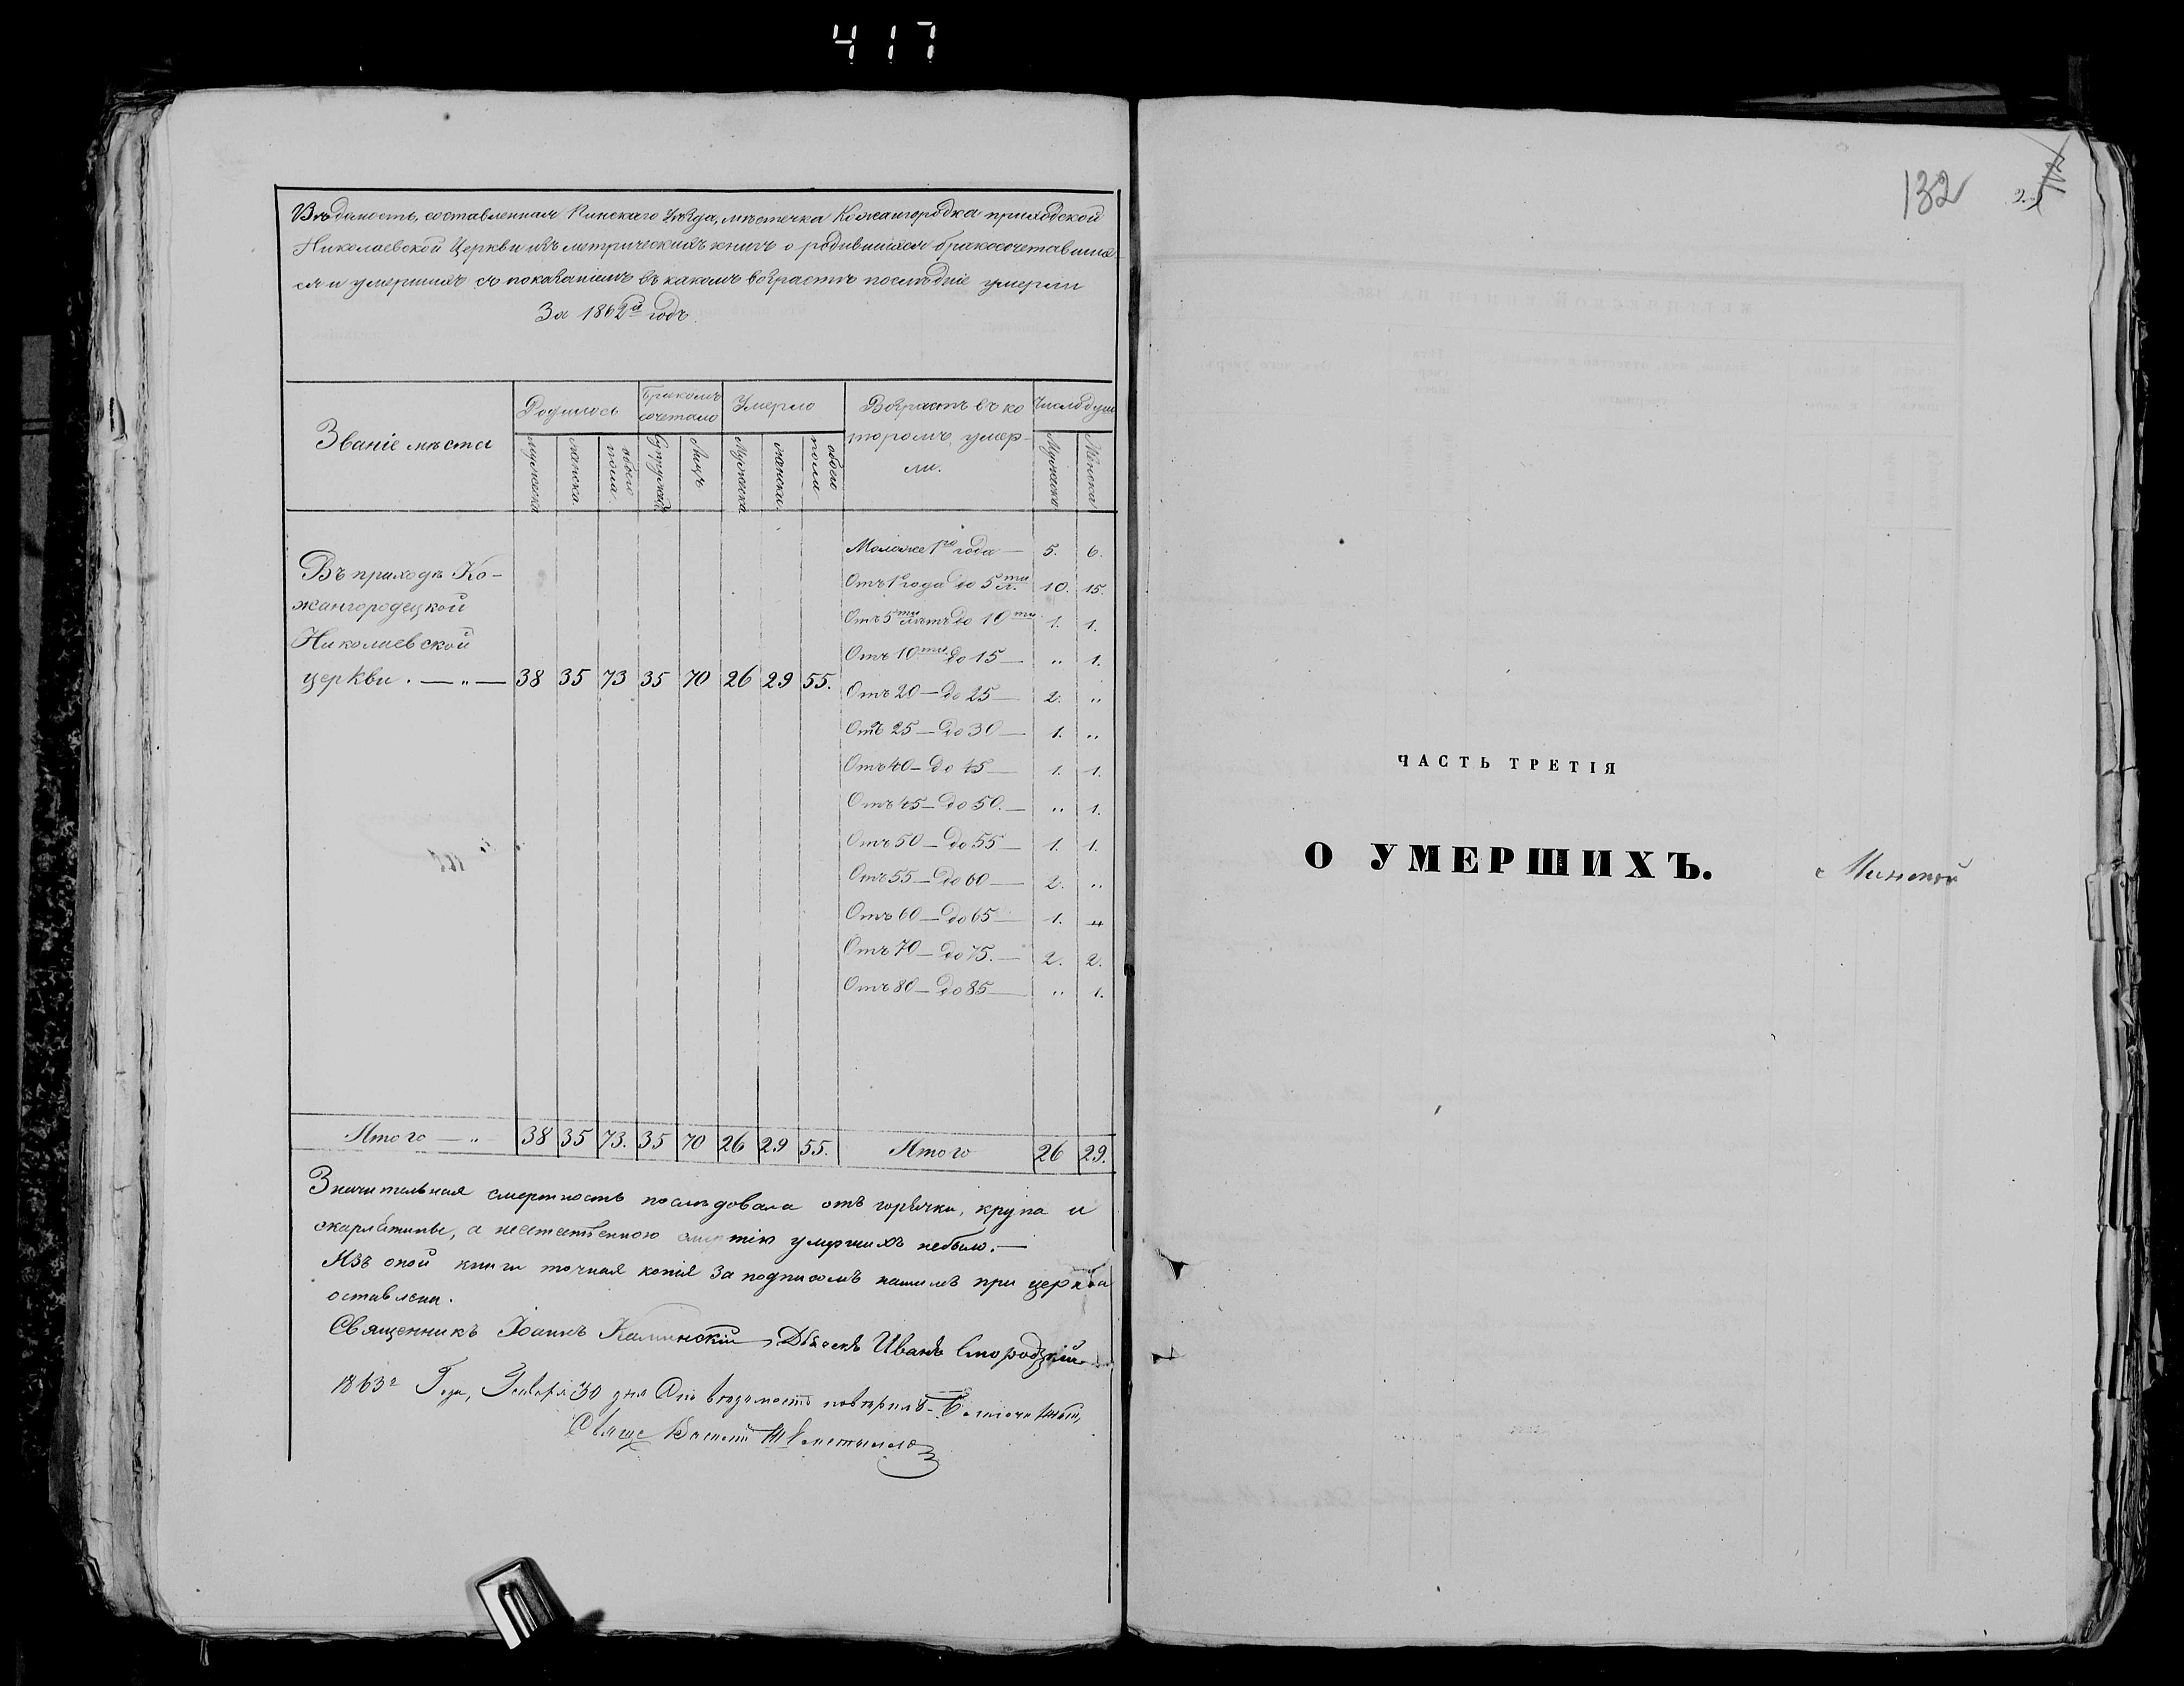 417
Вѣдомость, составленная Пинскаго Уѣзда, мѣстечка Кожангородка приходской
Николаевской Церкви изъ метрическихъ книгъ о родившихся бракосочетавших-
ся и умершихъ съ показаніемъ въ какомъ возрастѣ послѣдніе умерли
За 1862й годъ.
Званіе мѣста
Родилось
Бракомъ сочетано
Умерло
Возрастъ въ ко
тором, умер-
ли.
Число душъ
мужеска
женска.
обоего пола.
Супружей
Лицъ
Мужеска
женска.
обоего пола
Мужеска
Женска
Въ приходѣ Ко-
жангородецкой
Николаевской
церкви. — „ — 38 35 73 35 70 26 29 55.
Моложе 1го года — 5. 6.
Отъ 1 года до 5ти л. 10. 15.
Отъ 5ти лѣтъ до 10ти 1. 1.
Отъ 10ти до 15 — „ 1.
Отъ 20 — до 25 — 2. „
Отъ 25 — до 30 — 1. „
Отъ 40 — до 45 — 1. 1.
Отъ 45 — до 50. — „ 1.
Отъ 50 — до 55 — 1. 1.
Отъ 55 — до 60 — 2. „
Отъ 60 — до 65 — 1. „
Отъ 70 — до 75. — 2. 2.
Отъ 80 — до 85 — „ 1.
Итого — „ 38 35 73. 35 70 26 29 55. Итого 26 29.
Значительная смертность послѣдовала отъ горячки, крупа и
скарлатины, а неестественною смертію умершихъ небыло. —
Изъ оной книги точная копія за подписомъ нашимъ при церкви
оставлена.
Священникъ Іоаннъ Каминскій, Дьячекъ Иванъ Смородскій
1863го Года, Января 30 дня Сію вѣдомость повѣрилъ Благочинный,
Свящ Василій
132
ЧАСТЬ ТРЕТІЯ
О УМЕРШИХЪ.
Минской